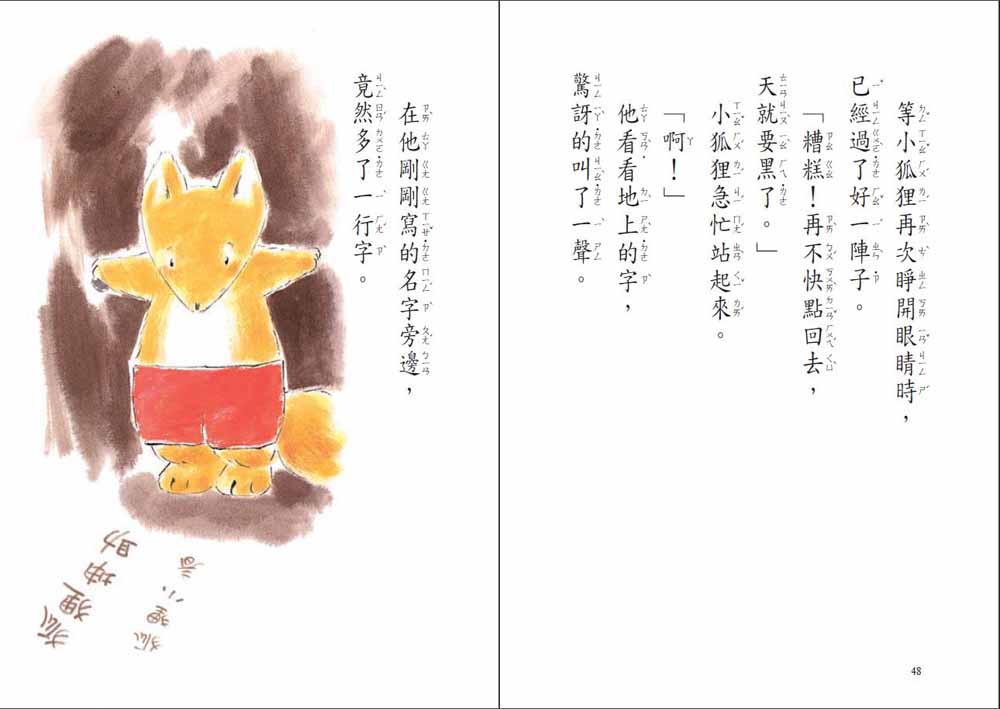 等小狐狸再次睜開眼睛時，
已經過了好一陣子。
「糟糕！再不快點回去，
天就要黑了。」
小狐狸急忙站起來。
「啊！」
他看看地上的字，
驚訝的叫了一聲。
48
在他剛剛寫的名字旁邊，
竟然多了一行字。
狐狸小春
狐狸坤助